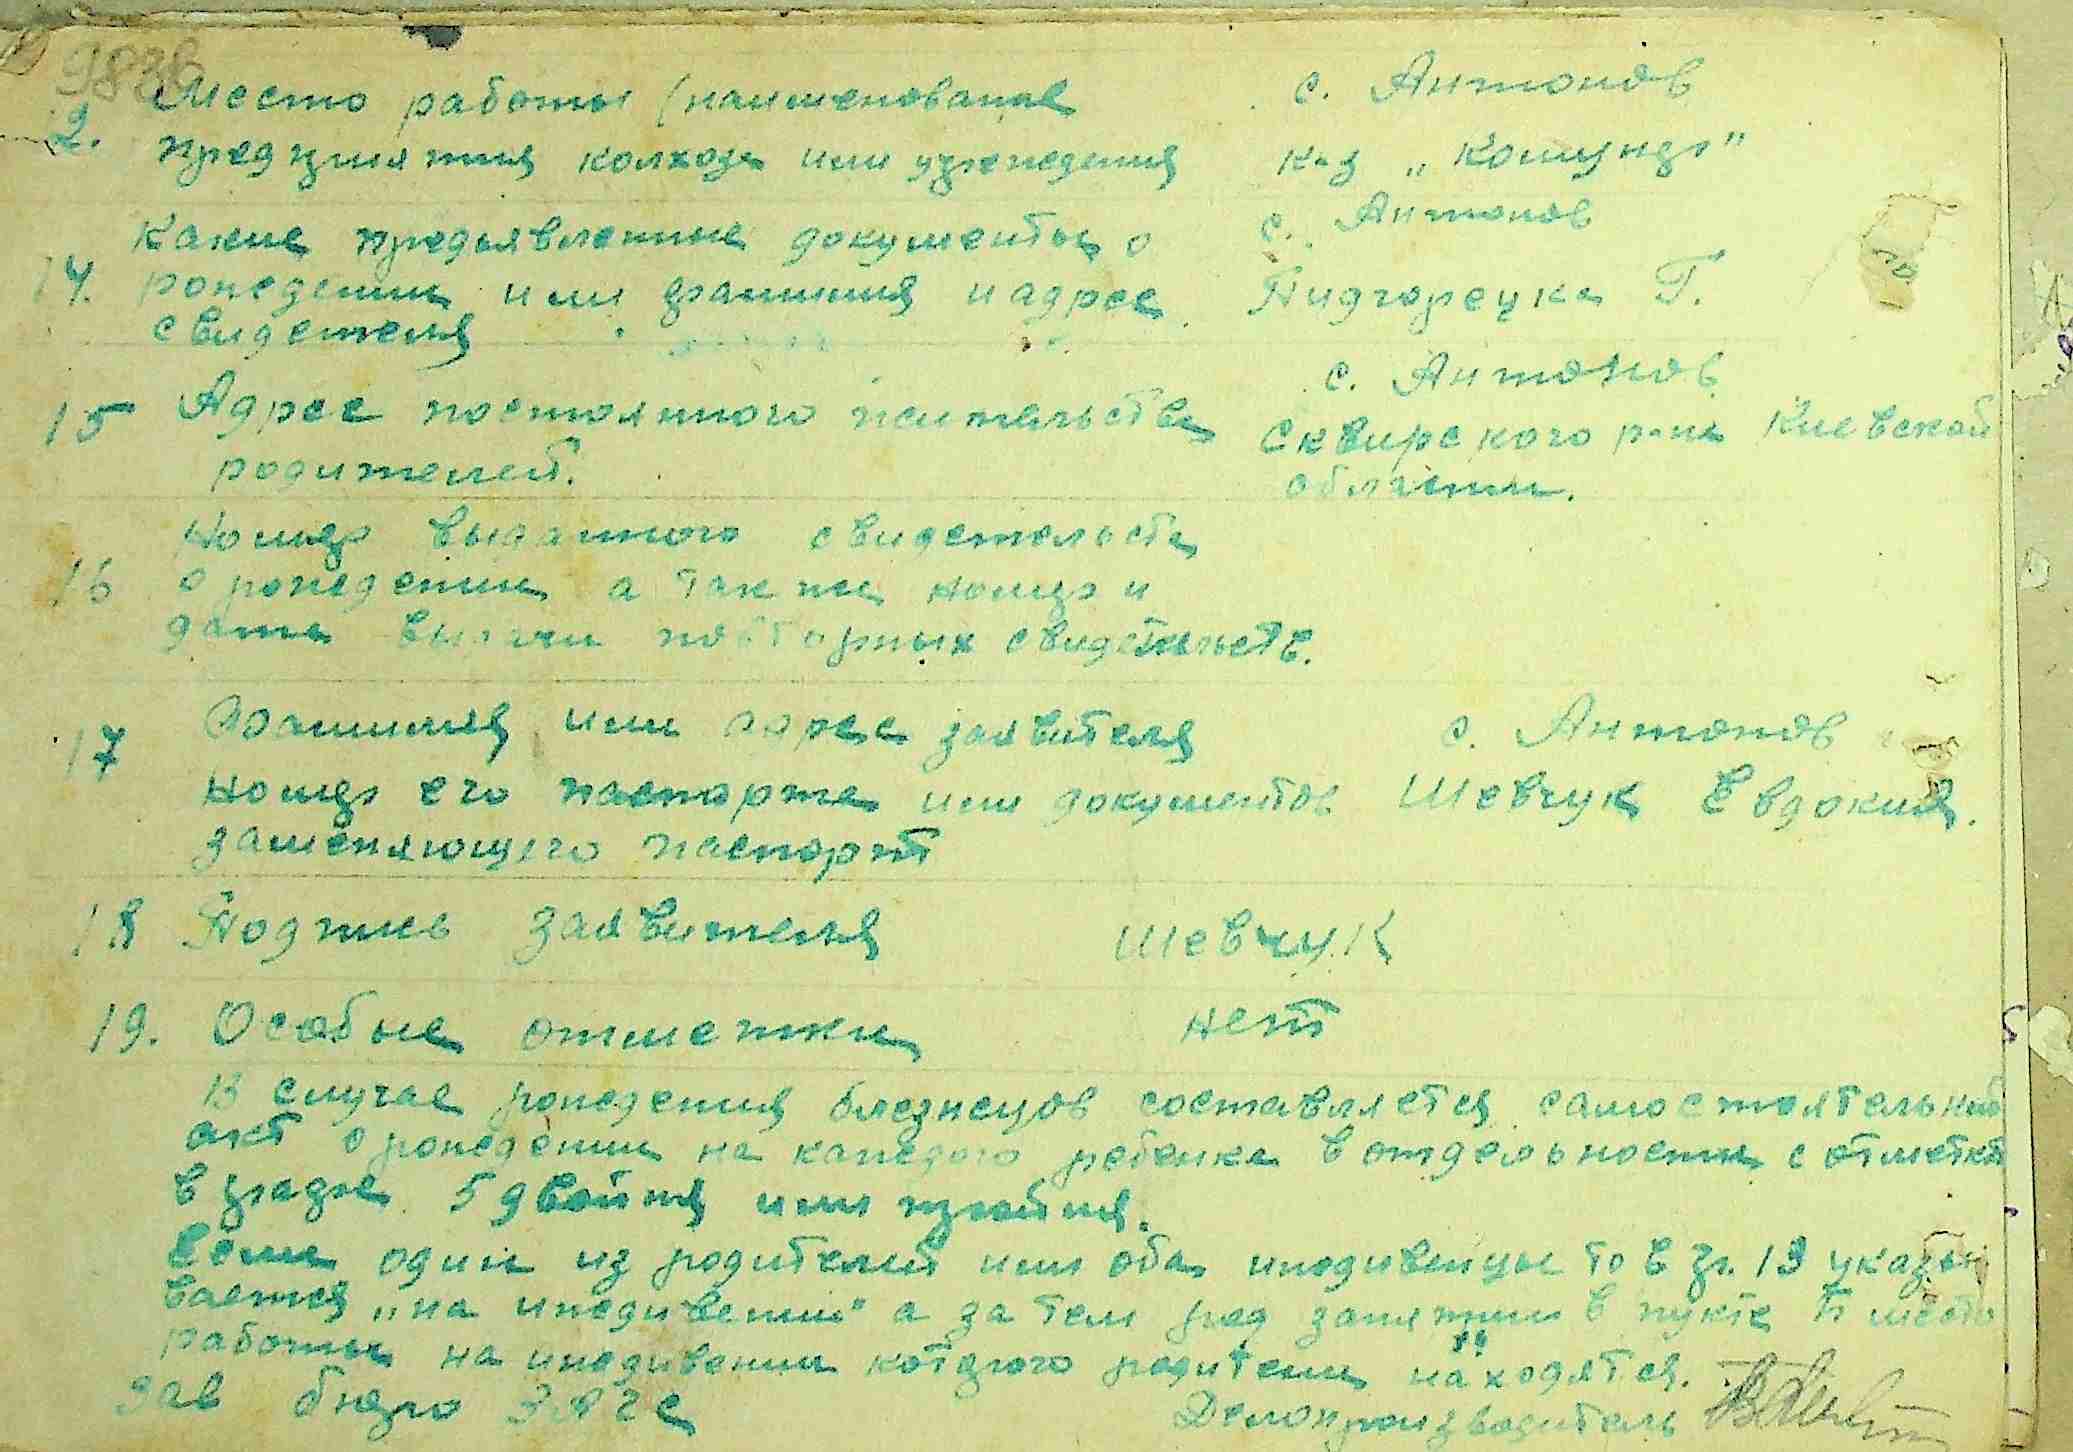 Место работы (наименование с. Антонов
2. предприятия колхоза или учреждения к-з „Комунар"
Какие предъявленние документы о с. Антонов
14. рождении или фамилия и адрес Пидгорецка Г.
свидетеля
с. Антонов
15 Адрес постоянного жительства Сквирского р-на Киевской
родителей. области.
Номер выданного свидетельств
16 о рождении а так же номер и
дата выдачи повторных свидетельств.
17 Фамилия или адрес заявителя с. Антонов
номер его паспорта или документов Шевчук Евдокия.
заменяющего паспорт
18 Подпись заявителя Шевчук
19. Особые отметки нет
В случае рождения близнецов составляется самостоятельный
акт о рождении на каждого ребенка в отдельности с отметкой
в графе 5 двойня или тройня.
Если один из родителей или оба иждивенцы то в гр. 13 указы
вается „на иждивении" а затем род занятий в пункте Б место
работы на иждивении которого родители находятся.
Зав бюро ЗАГС Делопроизводитель